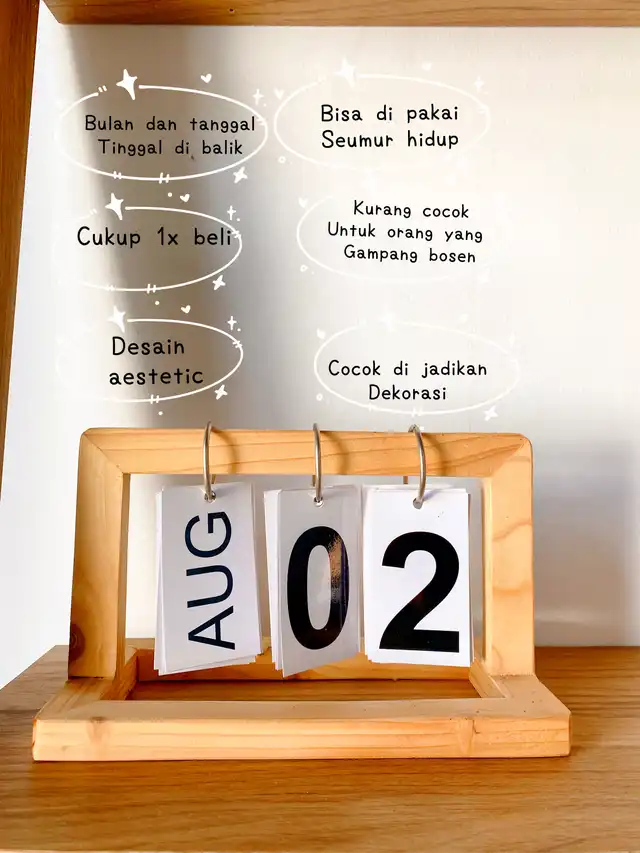 Bulan dan tanggal
Tinggal di balik
Bisa di pakai
Seumur hidup
Cukup 1x beli
Kurang cocok
Untuk orang yang
Gampang bosen
Desain
aestetic
Cocok di jadikan
Dekorasi
AUG
0
2